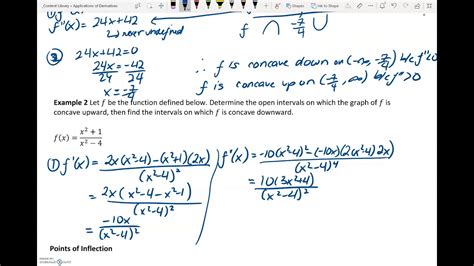 Content Library > Applications of Derivatives
f''(x) = 24x+42
↳ never undefined
f ∩ -7/4 ∪
② 24x+42=0
24x = -42
24 24
x = -7/4
∴ f is concave down on (-∞, -7/4) b/c f''<0
f is concave up on (-7/4, ∞) b/c f''>0
Example 2 Let f be the function defined below. Determine the open intervals on which the graph of f is
concave upward, then find the intervals on which f is concave downward.
f(x) = (x² + 1)/(x² − 4)
① f'(x) = (2x(x²-4) - (x²+1)(2x))/(x²-4)²
= (2x(x²-4-x²-1))/(x²-4)²
= (-10x)/(x²-4)²
f''(x) = (-10(x²-4)² - (-10x)(2(x²-4)2x))/(x²-4)⁴
= (10(3x²+4))/(x²-4)²
Points of Inflection